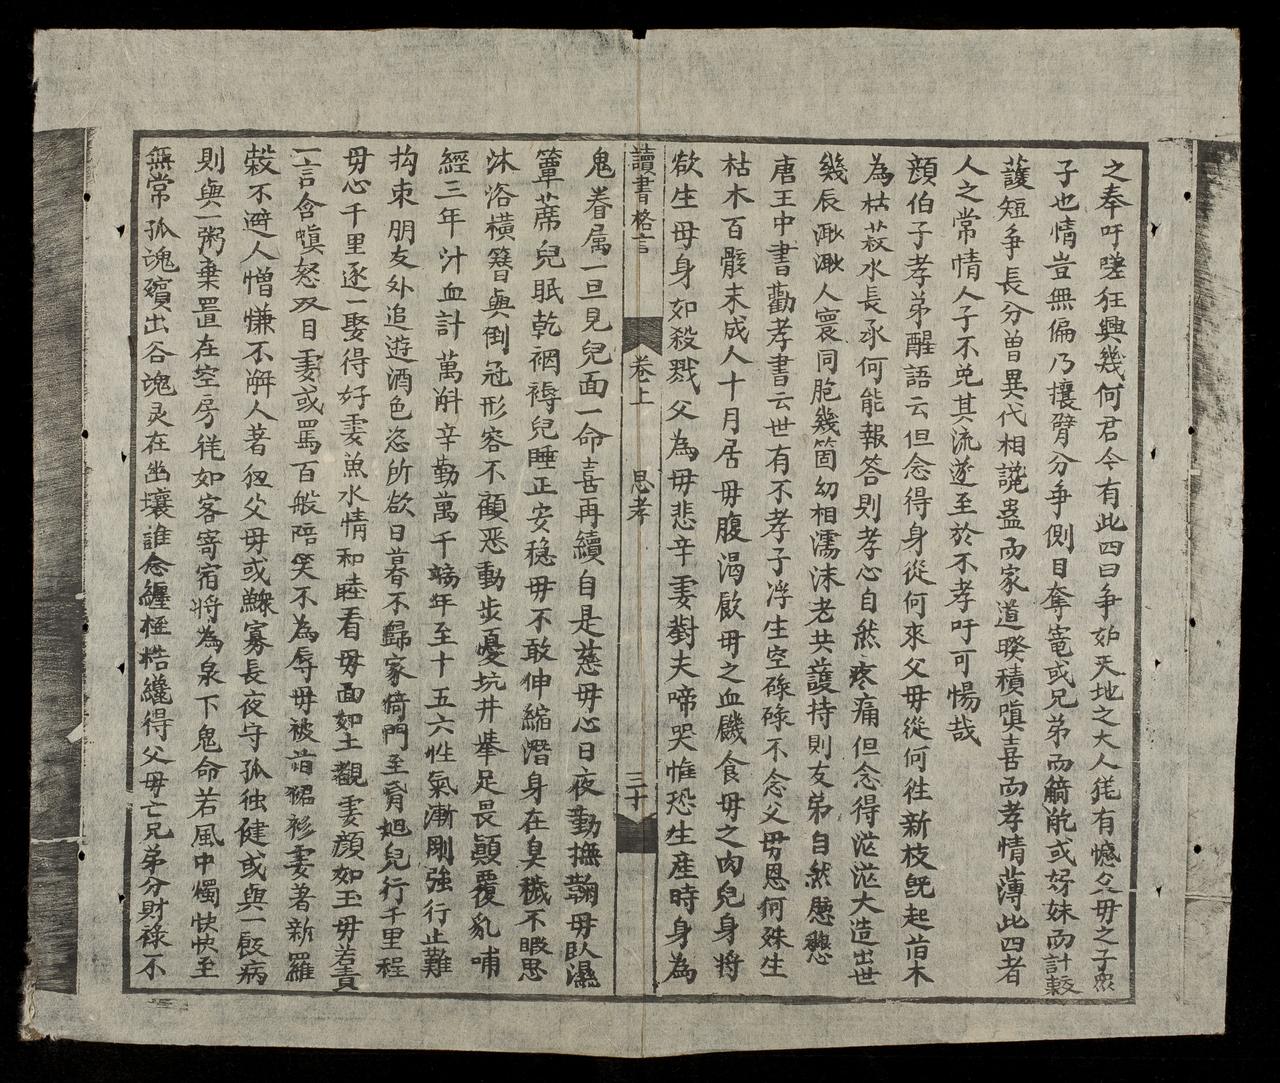 之奉吁嗟狂興幾何君今有此四曰争如天地之大人徔有憾父毋之子眾
子也情豈無偏乃攘臂分争側目奪竃或兄弟而或好妹而計較
護短争長分曽異代相讒蛊而家道暌積嗔喜而孝情薄此四者
人之常情人子不免其流遂至於不孝吁可惕哉
顔伯子孝弟醒語云但念得身從何來父毋從何徃新枝既起昔木
為枯菽水長承何能報答則孝心自然疼痛但念得茫茫大造出世
幾辰溵溵人寰同胞幾箇幼相濡沫老共護持則友弟自然懸戀
唐王中書勸孝書云世有不孝子浮生空碌碌不念父毋恩何殊生
枯木百骸未成人十月居毋腹渴歠毋之血饑食毋之肉兒身將
欲生毋身如殺戮父為毋悲辛妻對夫啼哭惟恐生産時身為
讀書格言 卷上 思孝 三十
鬼眷属一旦見兒面一命喜再續自是慈毋心日夜勤撫鞠毋臥濕
簟蓆兒眠乾裀褥兒睡正安穏毋不敢伸縮潛身在臭穢不暇思
沐浴橫簮與倒冠形容不顧恶動步憂坑井舉足畏顛覆乳哺
經三年汁血計萬斛辛勤萬千端年至十五六性氣漸剛強行止難
拘束朋友外追遊酒色恣所欲日暮不歸家倚門至胷兒行千里程
毋心千里逐一娶得好妻魚水情和睦看毋面如土觀妻顔如玉毋若責
一言含嗔怒双目妻或罵百般陪笑不為辱毋被旧裙衫妻著新羅
穀不避人憎慊不辦人著父毋或鰥寡長夜守孤独健或與一飯病
則與一粥棄置在空房徔如客寄宿将為泉下鬼命若風中燭快快至
無常孤魂殯出谷魂灵在幽壤誰念纒桎梏纔得父毋亡兄弟分財祿不